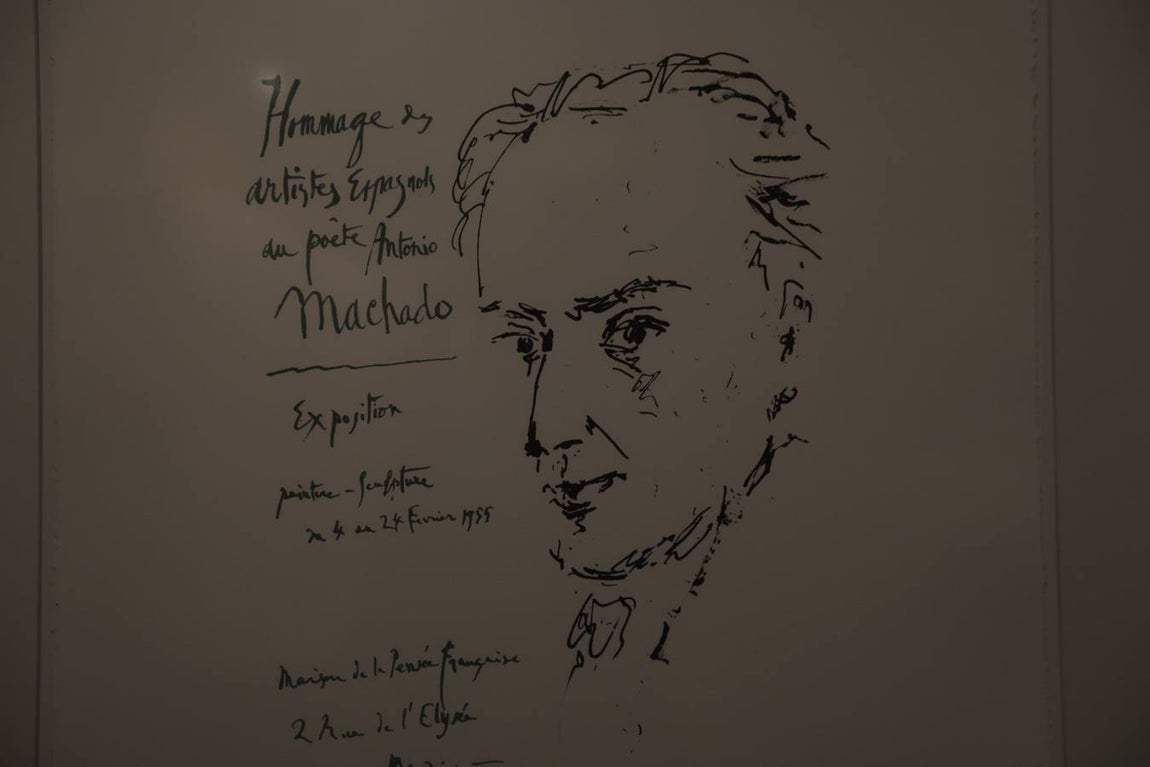 Hommage des
artistes Espagnols
au poête Antonio
Machado
Exposition
peinture - Sculpture
du 4 au 24 Fevrier 1955
Maison de la Pensée Française
2 Rue de l'Elysée